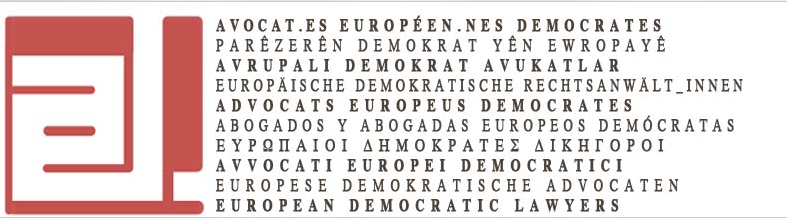 AVOCAT.ES EUROPÉEN.NES DEMOCRATES
PARÊZERÊN DEMOKRAT YÊN EWROPAYÊ
AVRUPALI DEMOKRAT AVUKATLAR
EUROPÄISCHE DEMOKRATISCHE RECHTSANWÄLT_INNEN
ADVOCATS EUROPEUS DEMOCRATES
ABOGADOS Y ABOGADAS EUROPEOS DEMÓCRATAS
ΕΥΡΩΠΑΙΟΙ ΔΗΜΟΚΡΑΤΕΣ ΔΙΚΗΓΟΡΟΙ
AVVOCATI EUROPEI DEMOCRATICI
EUROPESE DEMOKRATISCHE ADVOCATEN
EUROPEAN DEMOCRATIC LAWYERS